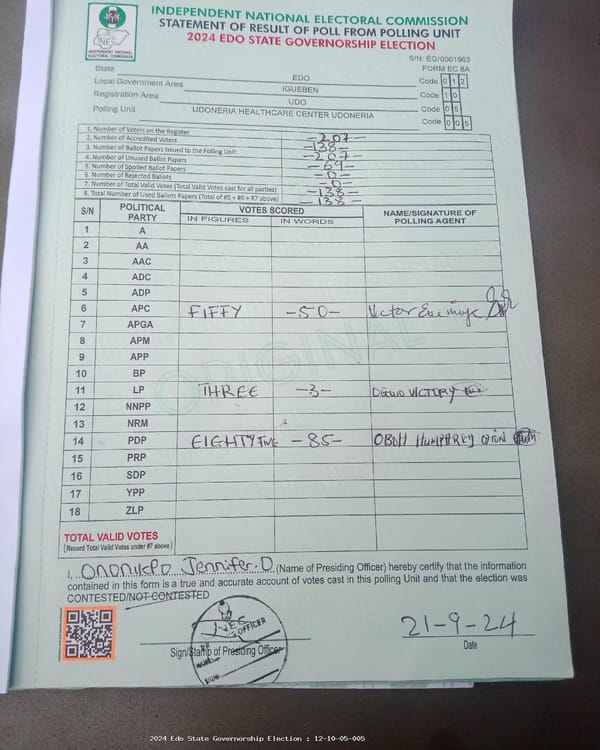 INDEPENDENT NATIONAL ELECTORAL COMMISSION
STATEMENT OF RESULT OF POLL FROM POLLING UNIT
2024 EDO STATE GOVERNORSHIP ELECTION
INEC
INDEPENDENT NATIONAL ELECTORAL COMMISSION
S/N: EG/0001963
FORM EC 8A
State EDO Code 0 1 2
Local Government Area IGUEBEN Code 1 0
Registration Area UDO Code 0 5
Polling Unit UDONERIA HEALTHCARE CENTER UDONERIA Code 0 0 5
1. Number of Voters on the Register -207-
2. Number of Accredited Voters -138-
3. Number of Ballot Papers Issued to the Polling Unit -207-
4. Number of Unused Ballot Papers -69-
5. Number of Spoiled Ballot Papers -0-
6. Number of Rejected Ballots -0-
7. Number of Total Valid Votes (Total Valid Votes cast for all parties) -138-
8. Total Number of Used Ballots Papers (Total of #5 + #6 + #7 above) -138-
S/N POLITICAL PARTY VOTES SCORED NAME/SIGNATURE OF POLLING AGENT
IN FIGURES IN WORDS
1 A
2 AA
3 AAC
4 ADC
5 ADP
6 APC FIFFY -50- Victor
7 APGA
8 APM
9 APP
10 BP
11 LP THREE -3- VICTORY
12 NNPP
13 NRM
14 PDP EIGHTY FIVE -85- HUMPHREY
15 PRP
16 SDP
17 YPP
18 ZLP
ORIGINAL
TOTAL VALID VOTES
(Record Total Valid Votes under #7 above)
I, Jennifer.O (Name of Presiding Officer) hereby certify that the information
contained in this form is a true and accurate account of votes cast in this polling Unit and that the election was
CONTESTED/NOT CONTESTED
INEC
OFFICER
Sign/Stamp of Presiding Officer
21-9-24
Date
2024 Edo State Governorship Election : 12-10-05-005